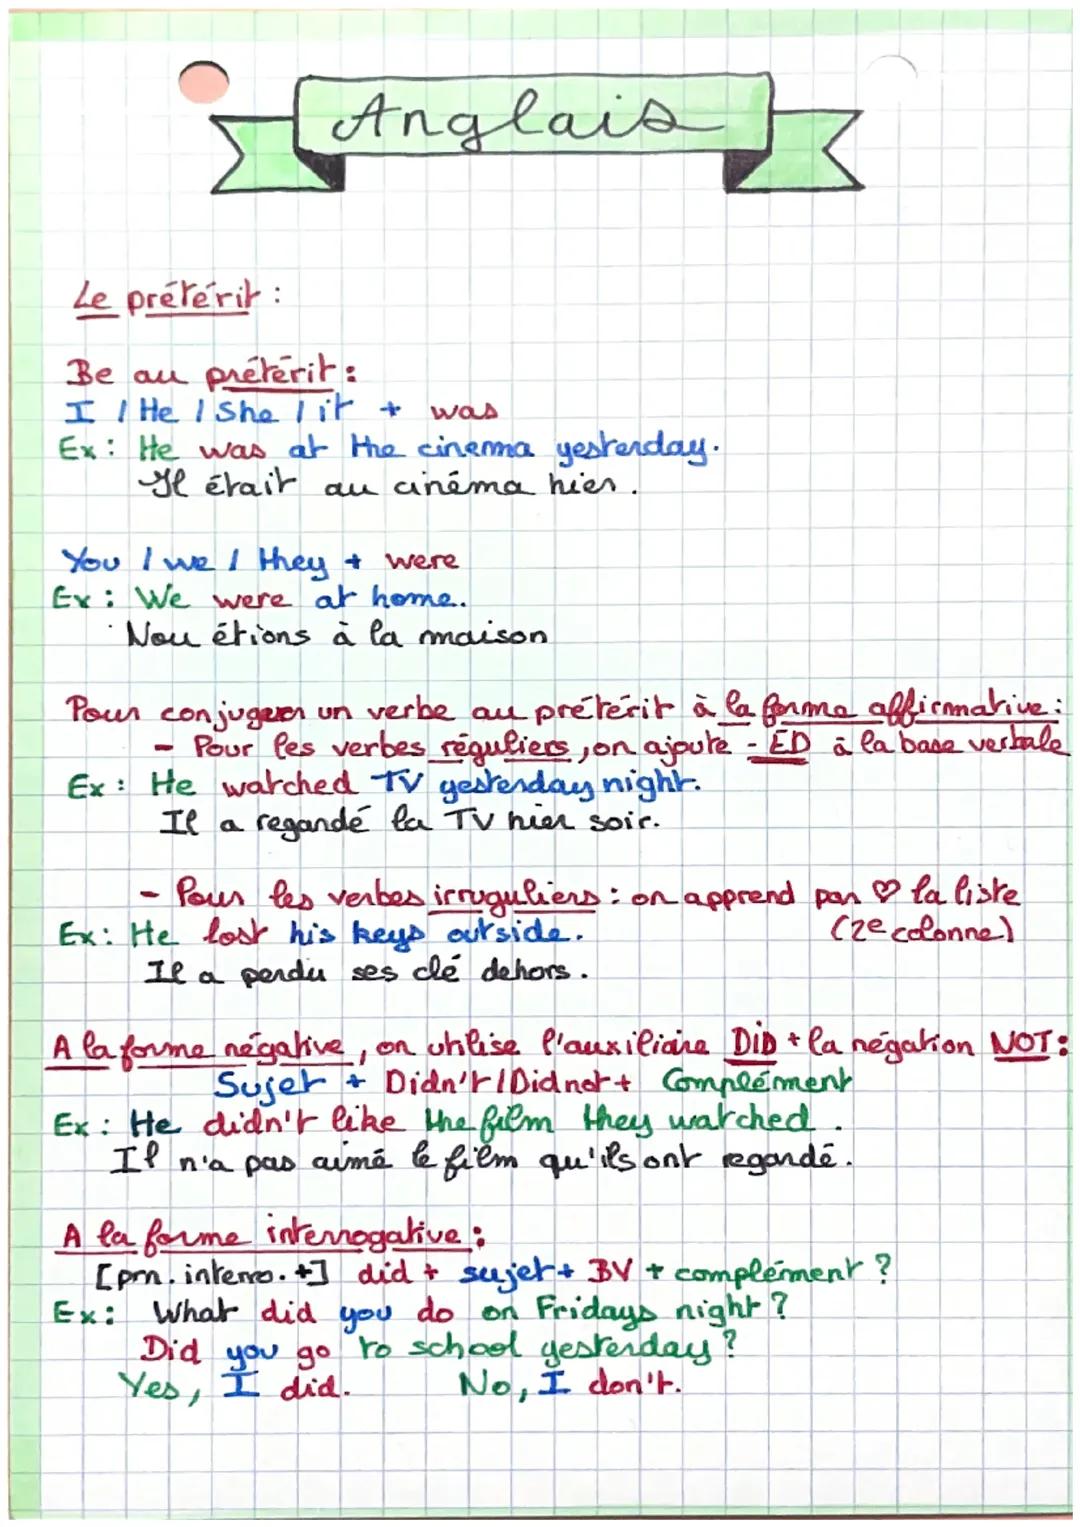 Anglais
Le prétérit :
Be au prétérit :
I / He / She / it + was
Ex : He was at the cinema yesterday.
Il était au cinéma hier.
You / we / they + were
Ex : We were at home.
Nou étions à la maison
Pour conjuguer un verbe au prétérit à la forme affirmative :
- Pour les verbes réguliers, on ajoute - ED à la base verbale
Ex : He watched TV yesterday night.
Il a regardé la TV hier soir.
- Pour les verbes irruguliers : on apprend par ♡ la liste
(2e colonne)
Ex : He lost his keys outside.
Il a perdu ses clé dehors.
A la forme négative, on utilise l'auxiliaire DID + la négation NOT :
Sujet + Didn't / Did not + Complément
Ex : He didn't like the film they watched.
Il n'a pas aimé le film qu'ils ont regardé.
A la forme interrogative :
[prn. interro. +] did + sujet + BV + complément ?
Ex : What did you do on Fridays night ?
Did you go to school yesterday ?
Yes, I did. No, I don't.